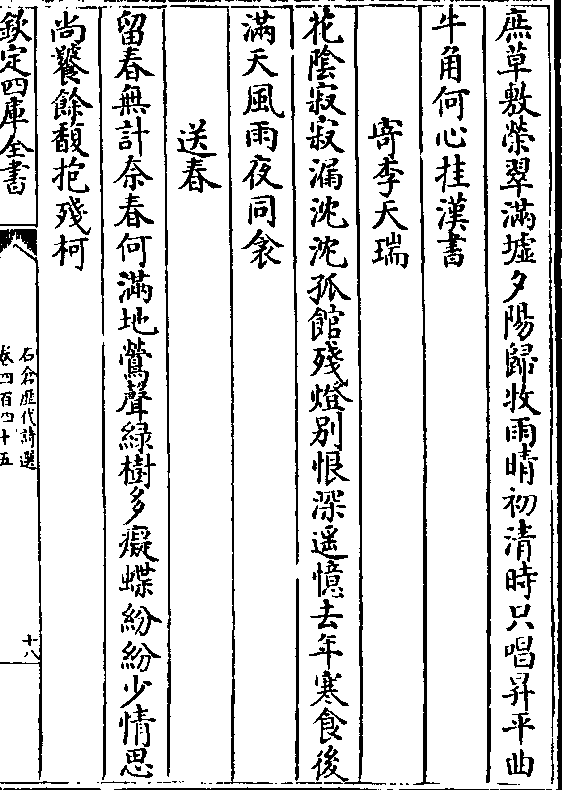 庶草敷榮翠滿墟夕陽歸牧雨晴初清時只唱昇平曲
牛角何心挂漢書
寄季天瑞
花陰寂寂漏沈沈孤館殘燈別恨深遥憶去年寒食後
滿天風雨夜同衾
送春
留春無計奈春何滿地鶯聲綠樹多癡蝶紛紛少情思
尚饕餘馥抱殘柯
欽定四庫全書
石倉歷代詩選
卷四百四十五
十八